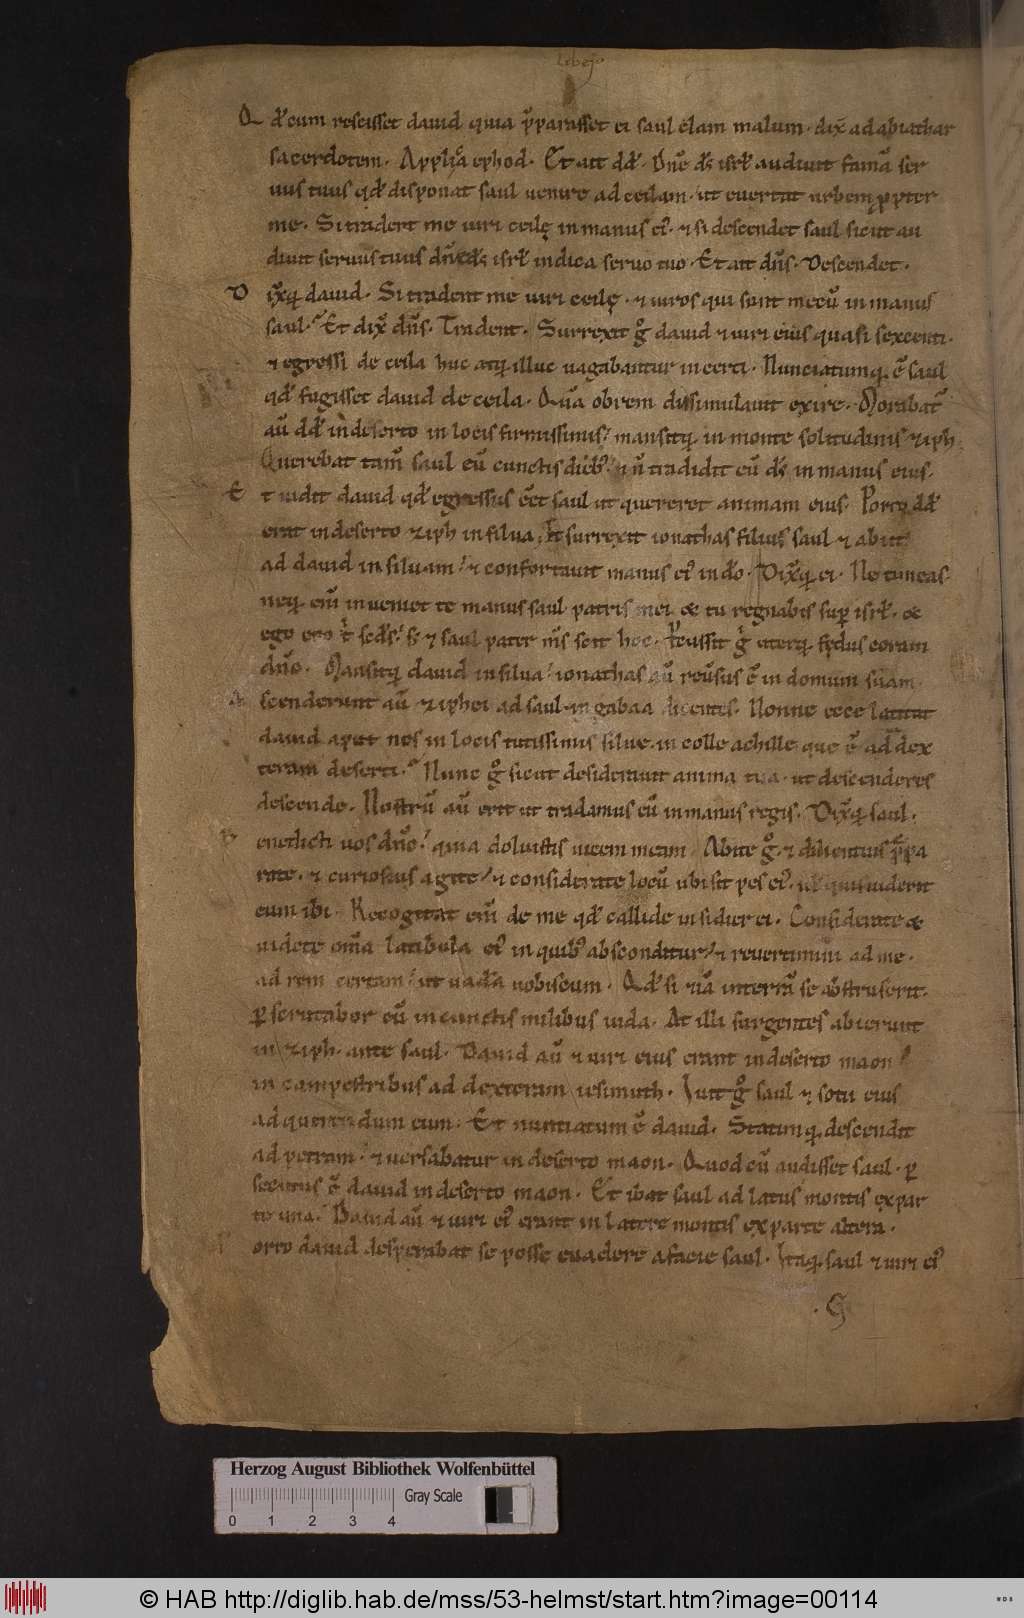 Qd̄ cum rescisset dauid quia p̄parasset ei saul clam malum. dix̄ ad abiathar
sacerdotem. Applica ephod. Et ait dd̄. Dn̄e ds̄ isrł audiuit famā ser
uus tuus qd̄ disponat saul uenire ad ceilam. ut euertat urbem ꝓpter
me. Si tradent me uiri ceilę in manus ei᷒. ⁊ si descendet saul sicut au
diuit seruus tuus dn̄e ds̄ isrł indica seruo tuo. Et ait dn̄s. Descendet.
Dixitq; dauid. Si tradent me uiri ceilę. ⁊ uiros qui sunt mecū in manus
saul. Et dix̄ dn̄s. Tradent. Surrexit gͦ dauid ⁊ uiri eius quasi sexcenti.
⁊ egressi de ceila huc atq; illuc uagabantur incerti. Nunciatumq; ē saul
qd̄ fugisset dauid de ceila. Quā obrem dissimulauit exire. Morabat᷑
aū dd̄ in deserto in locis firmissimis. mansitq; in monte solitudinis ziph
Querebat tam̄ saul eū cunctis dieb᷒. ⁊ n̄ tradidit eū ds̄ in manus eius.
Et uidit dauid qd̄ egressus eēt saul ut quereret animam eius. Porro dd̄
erat in deserto ziph in silua. Et surrexit ionathas filius saul ⁊ abiit
ad dauid in siluam. ⁊ confortauit manus ei᷒ in dō. Dixitq; ei. Ne timeas
neq; enī inueniet te manus saul patris mei & tu regnabis suꝑ isrł. &
ego ero t᷑ scds̄. sꝫ ⁊ saul pater ms̄ scit hoc. Percussit gͥ uterq; fędus coram
dn̄o. Mansitq; dauid in silua. ionathas aū reūsus ē in domum suam.
Ascenderunt aū ziphei ad saul in gabaa dicentes. Nonne ecce latitat
dauid aput nos in locis tutissimis silue. in colle achille que ē ad dex
teram deserti. Nunc gͦ sicut desiderauit anima tua. ut descenderes
descende. Nostrū aū erit ut tradamus eū in manus regis. Dixitq; saul.
Benedicti uos dn̄o. quia doluistis uicem meam. Abite gͦ. ⁊ diligentius p̄pa
rate. ⁊ curiosius agite. ⁊ considerate locū ubi sit pes ei᷒. ul̄ quis uiderit
eum ibi. Recogitat enī de me qd̄ callide insidier ei. Considerate &
uidete om̄a latibula ei᷒ in quib᷒ absconditur. ⁊ reuertimini ad me.
ad rem certam. ut uadā uobiscum. Qd̄ si &iā in terrā se abstruserit.
ꝑscrutabor eū in cunctis milibus iuda. At illi surgentes abierunt
in ziph. ante saul. Dauid aū ⁊ uiri eius erant in deserto maon
in campestribus ad dexteram iesimuth. Iuit gͦ saul ⁊ socii eius
ad querendum eum. Et nuntiatum ē dauid. Statimq; descendit
ad petram. ⁊ uersabatur in deserto maon. Quod cū audisset saul. ꝑ
secutus ē dauid in deserto maon. Et ibat saul ad latus montis ex par
te una. Dauid aū ⁊ uiri ei᷒ erant in latere montis ex parte altera.
Porro dauid desperabat se posse euadere a facie saul. Itaq; saul ⁊ uiri ei᷒
Herzog August Bibliothek Wolfenbüttel
Gray Scale
0 1 2 3 4
© HAB http://diglib.hab.de/mss/53-helmst/start.htm?image=00114